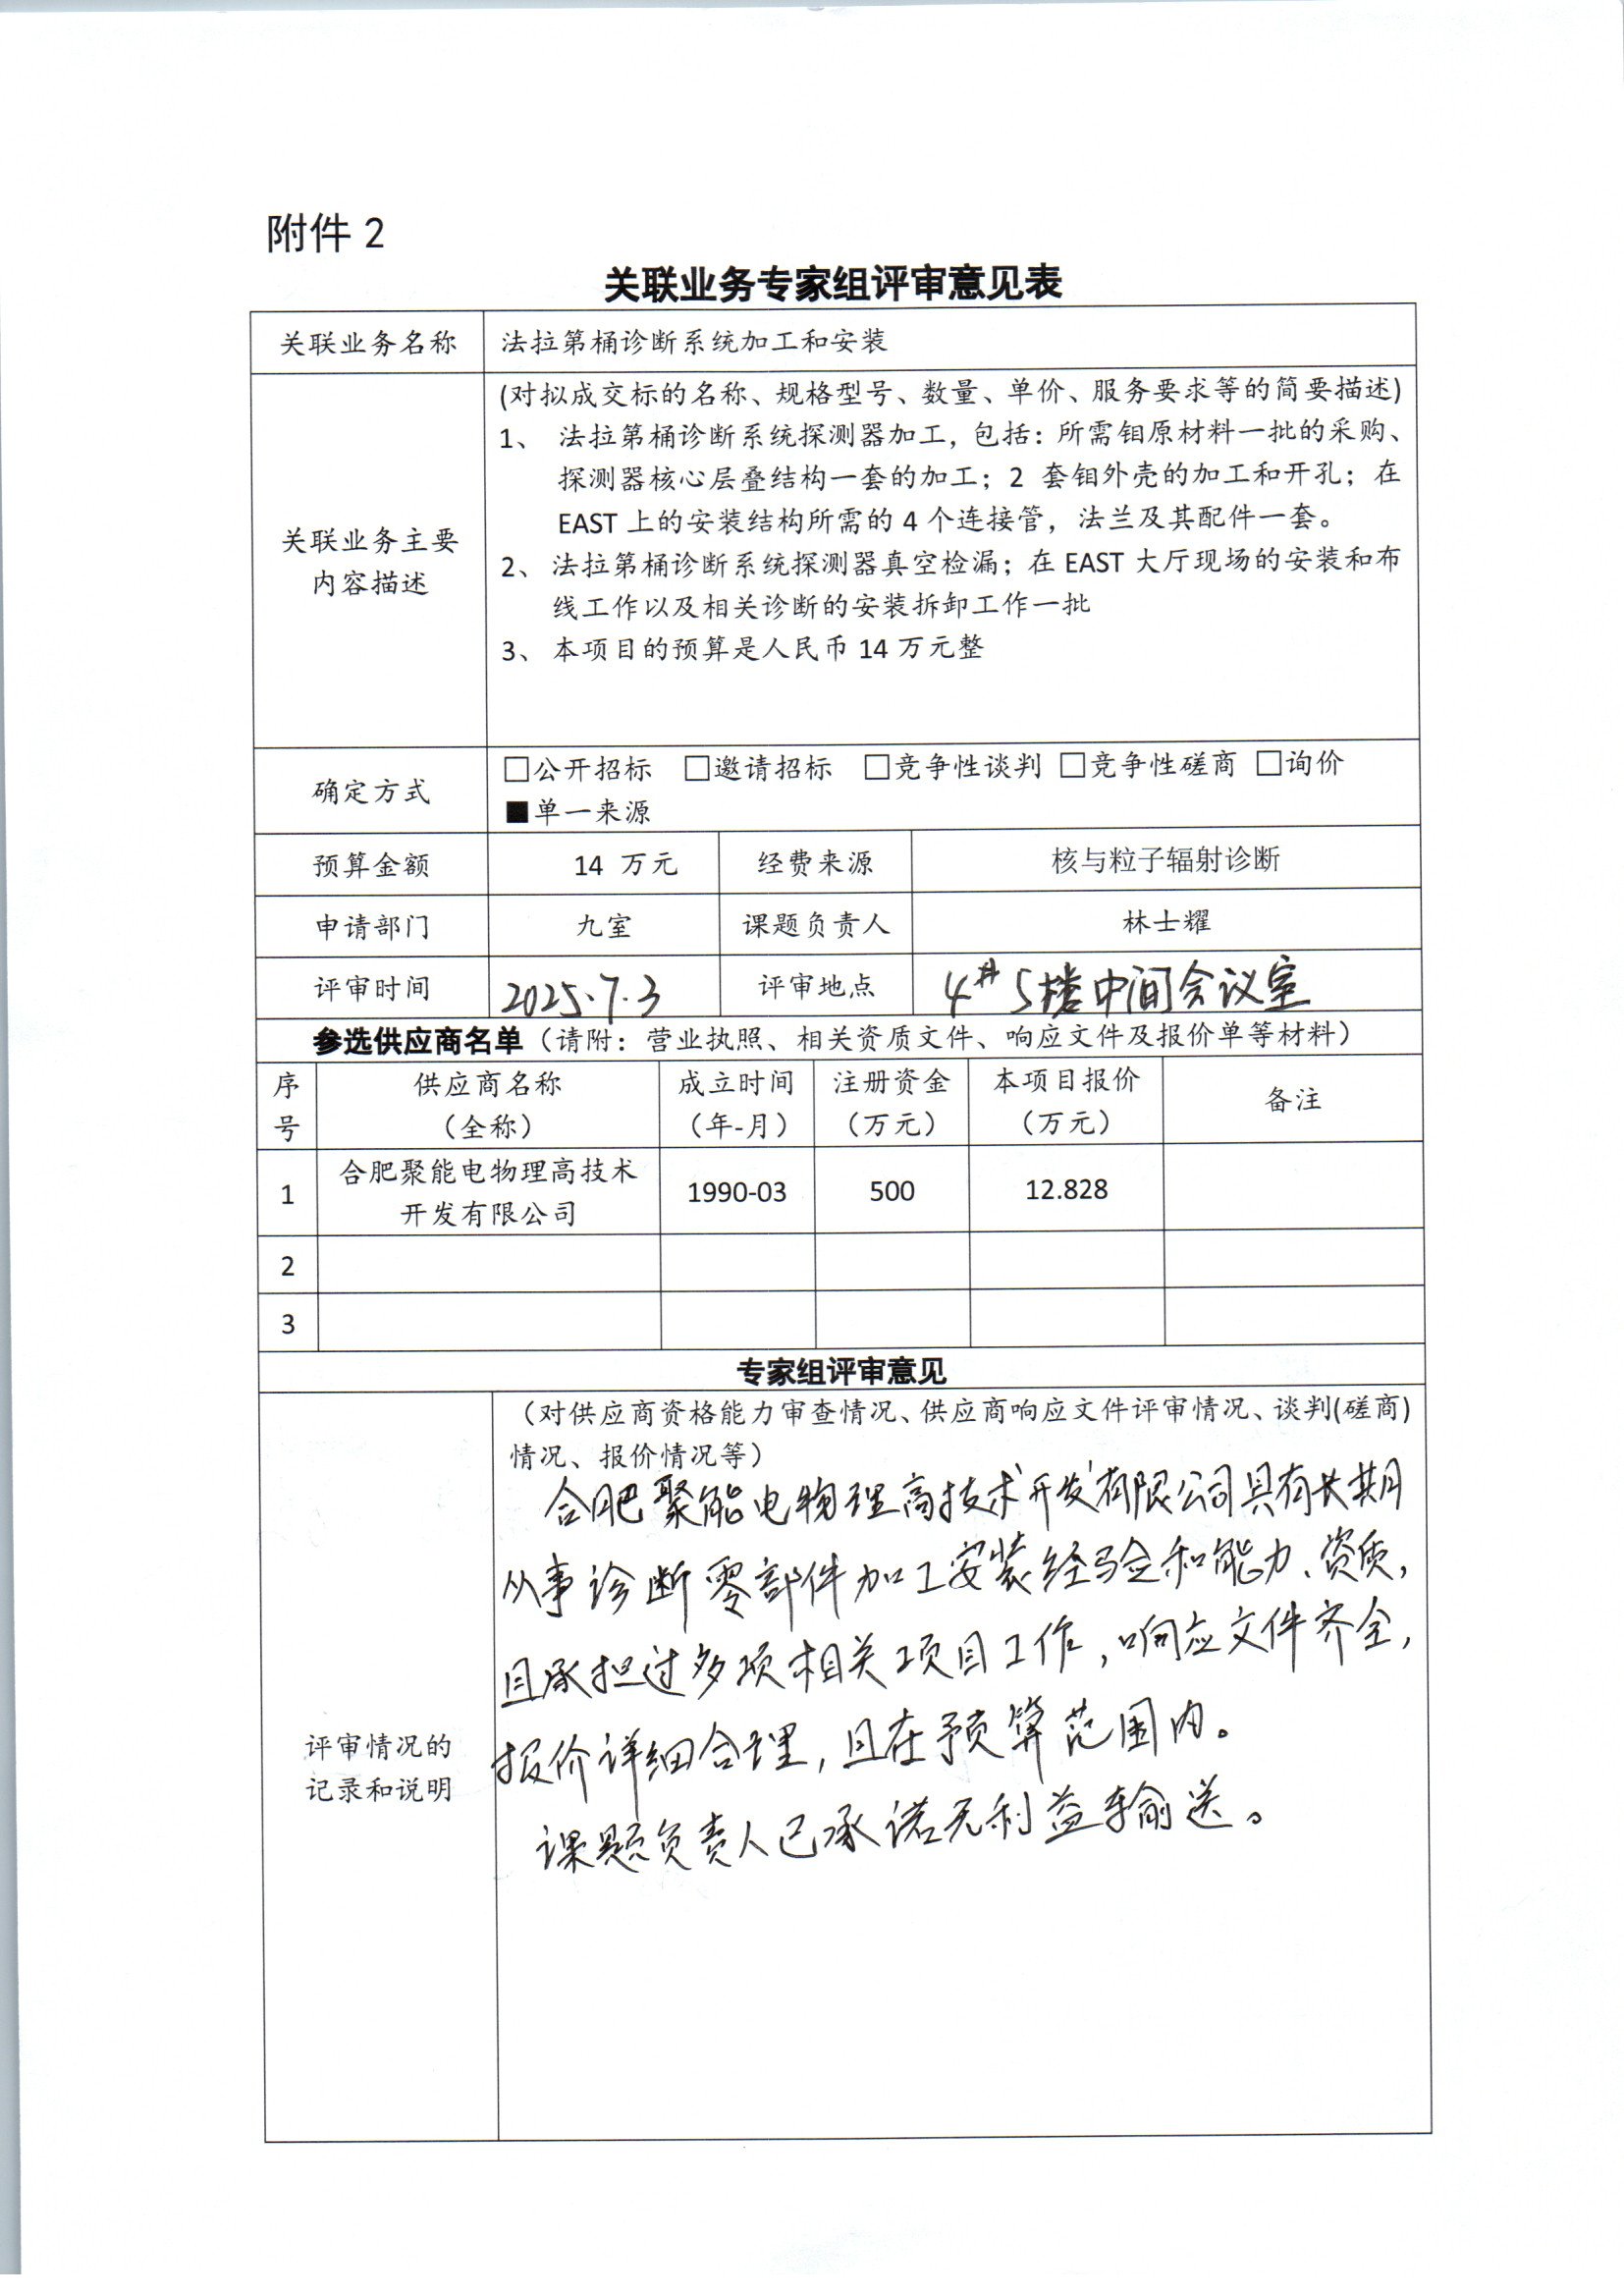 附件 2
关联业务专家组评审意见表
关联业务名称 法拉第桶诊断系统加工和安装
关联业务主要
内容描述
(对拟成交标的名称、规格型号、数量、单价、服务要求等的简要描述)
1、 法拉第桶诊断系统探测器加工，包括：所需钼原材料一批的采购、
探测器核心层叠结构一套的加工；2 套钼外壳的加工和开孔；在
EAST 上的安装结构所需的 4 个连接管，法兰及其配件一套。
2、 法拉第桶诊断系统探测器真空检漏；在 EAST 大厅现场的安装和布
线工作以及相关诊断的安装拆卸工作一批
3、 本项目的预算是人民币 14 万元整
确定方式
□公开招标 □邀请招标 □竞争性谈判 □竞争性磋商 □询价
■单一来源
预算金额 14 万元 经费来源 核与粒子辐射诊断
申请部门 九室 课题负责人 林士耀
评审时间 2025.7.3 评审地点 4# 5楼中间会议室
参选供应商名单（请附：营业执照、相关资质文件、响应文件及报价单等材料）
序号 供应商名称（全称） 成立时间（年-月） 注册资金（万元） 本项目报价（万元） 备注
1 合肥聚能电物理高技术开发有限公司 1990-03 500 12.828
2
3
专家组评审意见
评审情况的
记录和说明
（对供应商资格能力审查情况、供应商响应文件评审情况、谈判(磋商)
情况、报价情况等）
合肥聚能电物理高技术开发有限公司具有长期
从事诊断零部件加工安装经验和能力、资质，
且承担过多项相关项目工作，响应文件齐全，
报价详细合理，且在预算范围内。
课题负责人已承诺无利益输送。